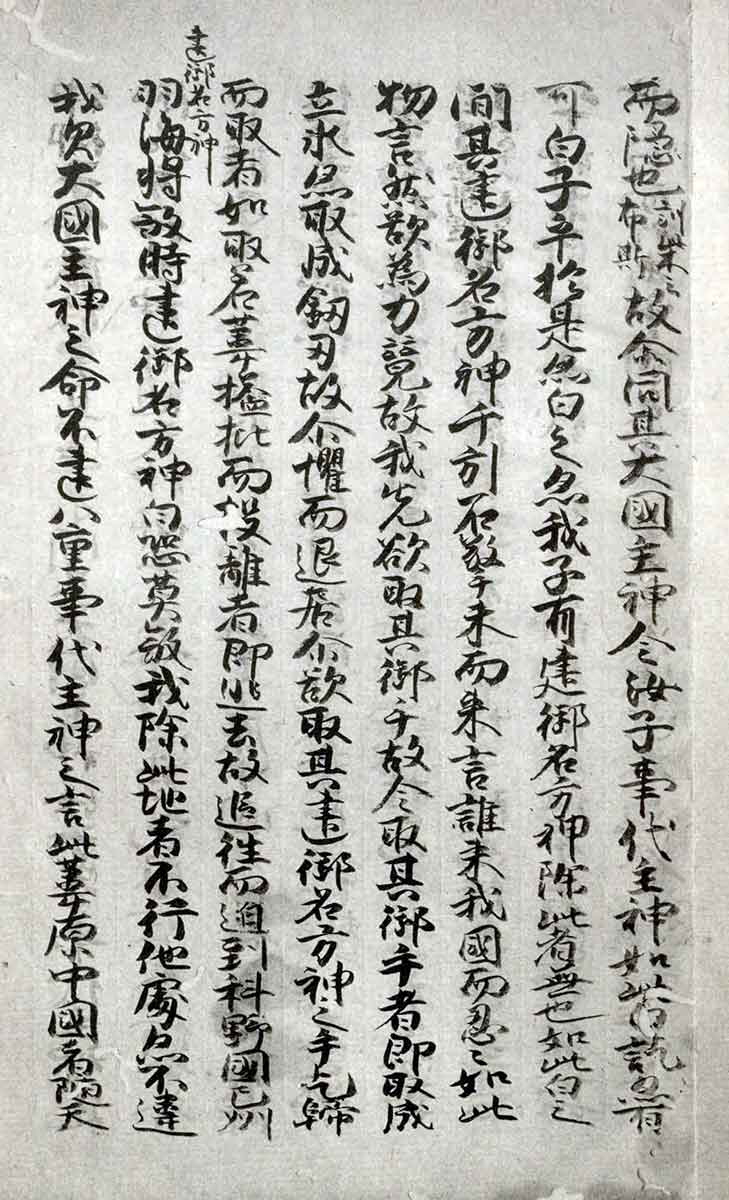 而隠也訓柴云布斯故尒問其大國主神今汝子事代主神如此白訖亦有
可白子乎於是亦白之亦我子有建御名方神除此者無也如此白之
間其建御名方神千引石擎手末而来言誰来我國而忍々如此
物言然欲為力競故我先欲取其御手故令取其御手者即取成
立氷亦取成釼刃故尒懼而退居尒欲取其建御名方神之手乞歸
而取者如取若葦搤批而投離者即逃去故追往而迫到科野國之州
建御名方神
羽海将殺時建御名方神白恐莫殺我除此地者不行他處亦不違
我父大國主神之命不違八重事代主神之言此葦原中國者随天